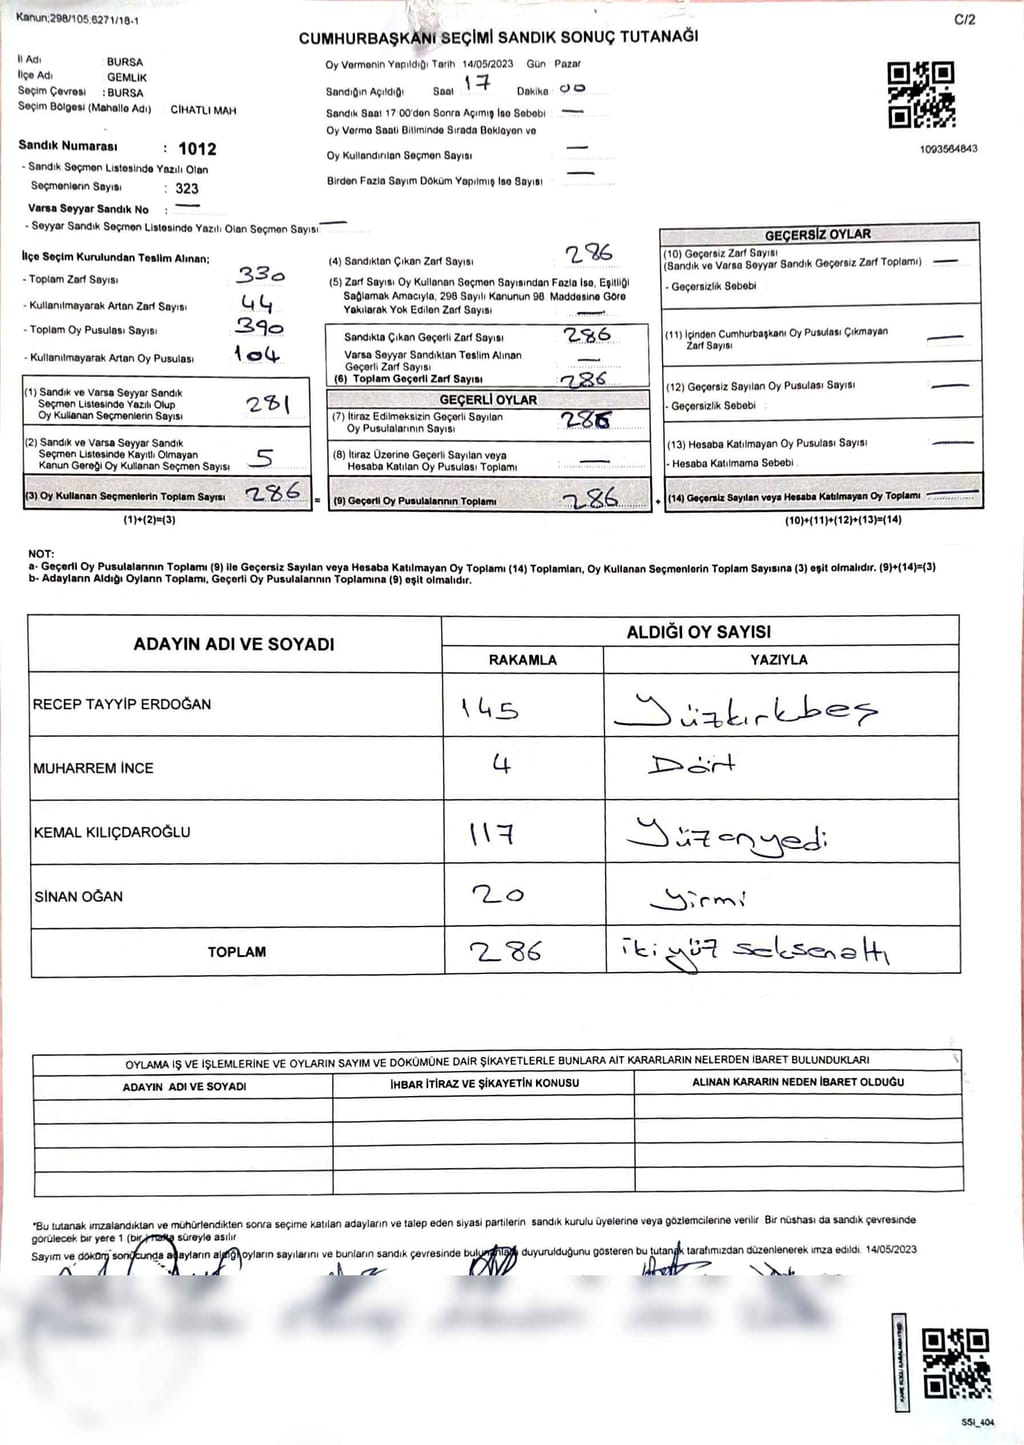 Kanun;298/105;6271/18-1
C/2
CUMHURBAŞKANI SEÇİMİ SANDIK SONUÇ TUTANAĞI
İl Adı BURSA
İlçe Adı GEMLİK
Seçim Çevresi : BURSA
Seçim Bölgesi (Mahalle Adı) CİHATLI MAH
Sandık Numarası : 1012
- Sandık Seçmen Listesinde Yazılı Olan
Seçmenlerin Sayısı : 323
Varsa Seyyar Sandık No : —
- Seyyar Sandık Seçmen Listesinde Yazılı Olan Seçmen Sayısı —
Oy Vermenin Yapıldığı Tarih 14/05/2023 Gün Pazar
Sandığın Açıldığı Saat 17 Dakika 00
Sandık Saat 17:00'den Sonra Açılmış İse Sebebi : —
Oy Verme Saati Bitiminde Sırada Bekleyen ve
Oy Kullandırılan Seçmen Sayısı : —
Birden Fazla Sayım Döküm Yapılmış İse Sayısı : —
1093564843
İlçe Seçim Kurulundan Teslim Alınan;
- Toplam Zarf Sayısı : 330
- Kullanılmayarak Artan Zarf Sayısı : 44
- Toplam Oy Pusulası Sayısı : 390
- Kullanılmayarak Artan Oy Pusulası : 104
(1) Sandık ve Varsa Seyyar Sandık
Seçmen Listesinde Yazılı Olup
Oy Kullanan Seçmenlerin Sayısı 281
(2) Sandık ve Varsa Seyyar Sandık
Seçmen Listesinde Kayıtlı Olmayan
Kanun Gereği Oy Kullanan Seçmen Sayısı 5
(3) Oy Kullanan Seçmenlerin Toplam Sayısı 286 =
(1)+(2)=(3)
(4) Sandıktan Çıkan Zarf Sayısı 286
(5) Zarf Sayısı Oy Kullanan Seçmen Sayısından Fazla İse, Eşitliği
Sağlamak Amacıyla, 298 Sayılı Kanunun 98. Maddesine Göre
Yakılarak Yok Edilen Zarf Sayısı —
Sandıkta Çıkan Geçerli Zarf Sayısı 286
Varsa Seyyar Sandıktan Teslim Alınan
Geçerli Zarf Sayısı —
(6) Toplam Geçerli Zarf Sayısı 286
GEÇERLİ OYLAR
(7) İtiraz Edilmeksizin Geçerli Sayılan
Oy Pusulalarının Sayısı 286
(8) İtiraz Üzerine Geçerli Sayılan veya
Hesaba Katılan Oy Pusulası Toplamı —
(9) Geçerli Oy Pusulalarının Toplamı 286 +
GEÇERSİZ OYLAR
(10) Geçersiz Zarf Sayısı
(Sandık ve Varsa Seyyar Sandık Geçersiz Zarf Toplamı) —
- Geçersizlik Sebebi :
(11) İçinden Cumhurbaşkanı Oy Pusulası Çıkmayan
Zarf Sayısı —
(12) Geçersiz Sayılan Oy Pusulası Sayısı —
- Geçersizlik Sebebi :
(13) Hesaba Katılmayan Oy Pusulası Sayısı —
- Hesaba Katılmama Sebebi :
(14) Geçersiz Sayılan veya Hesaba Katılmayan Oy Toplamı —
(10)+(11)+(12)+(13)=(14)
NOT:
a- Geçerli Oy Pusulalarının Toplamı (9) ile Geçersiz Sayılan veya Hesaba Katılmayan Oy Toplamı (14) Toplamları, Oy Kullanan Seçmenlerin Toplam Sayısına (3) eşit olmalıdır. (9)+(14)=(3)
b- Adayların Aldığı Oyların Toplamı, Geçerli Oy Pusulalarının Toplamına (9) eşit olmalıdır.
ADAYIN ADI VE SOYADI
ALDIĞI OY SAYISI
RAKAMLA YAZIYLA
RECEP TAYYİP ERDOĞAN 145 Yüzkırkbeş
MUHARREM İNCE 4 Dört
KEMAL KILIÇDAROĞLU 117 Yüzonyedi
SİNAN OĞAN 20 Yirmi
TOPLAM 286 ikiyüz seksenaltı
OYLAMA İŞ VE İŞLEMLERİNE VE OYLARIN SAYIM VE DÖKÜMÜNE DAİR ŞİKAYETLERLE BUNLARA AİT KARARLARIN NELERDEN İBARET BULUNDUKLARI
ADAYIN ADI VE SOYADI İHBAR İTİRAZ VE ŞİKAYETİN KONUSU ALINAN KARARIN NEDEN İBARET OLDUĞU
*Bu tutanak imzalandıktan ve mühürlendikten sonra seçime katılan adayların ve talep eden siyasi partilerin sandık kurulu üyelerine veya gözlemcilerine verilir Bir nüshası da sandık çevresinde
görülecek bir yere 1 (bir) hafta süreyle asılır
Sayım ve döküm sonucunda adayların aldığı oyların sayılarını ve bunların sandık çevresinde duyurulduğunu gösteren bu tutanak tarafımızdan düzenlenerek imza edildi. 14/05/2023
SSİ_404